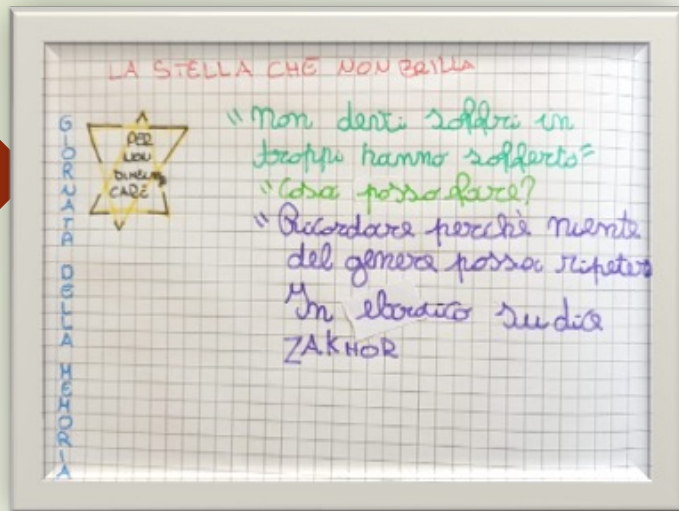 LA STELLA CHE NON BRILLA
GIORNATA DELLA MEMORIA
PER
NON
DIMENTI
CARE
"Non devi soffri in
troppi hanno sofferto"
"Cosa posso fare?
"Ricordare perchè niente
del genere possa ripeter
In ebraico su dice
ZAKHOR